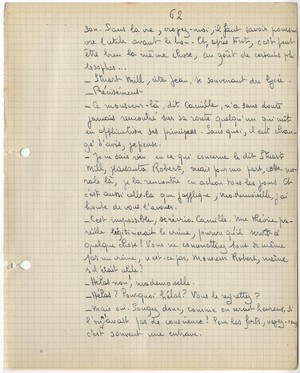 62
son. Dans la vie, voyez-vous, il faut savoir poursui-
vre l'utile avant le bon. Et, après tout, c'est peut
être bien la même chose, au goût de certains phi-
losophes...
- Stuart Mill, dit Jean, se souvenant du lycée.
- Précisément
- Ce monsieur-là, dit Camille, n'a sans doute
jamais rencontré sur sa route quelqu'un qui mit
en application ses principes. Sans quoi, il eût chan-
gé d'avis, je pense.
- Je ne sais rien en ce qui concerne le dit Stuart
Mill, Roberts, mais pour ma part, cette mo-
rale là, je la rencontre en action tous les jours. Et
c'est aussi celle-là que j'applique, mademoiselle, j'ai
honte de vous l'avouer.
- C'est impossible, se récria Camille. Une théorie pa-
reille légitimerait le crime, pourvu qu'il servît à
quelque chose ! Vous ne commettriez tout de même
pas un crime, n'est-ce pas, Monsieur Robert, même
s'il était utile ?
- Hélas non, mademoiselle.
- Hélas ? Pourquoi hélas ? Vous le regrettez ?
- Mais oui. Songez donc, comme on serait heureux, si
l'on n'avait pas de conscience ! Pour les forts, voyez-vous
c'est souvent une entrave.